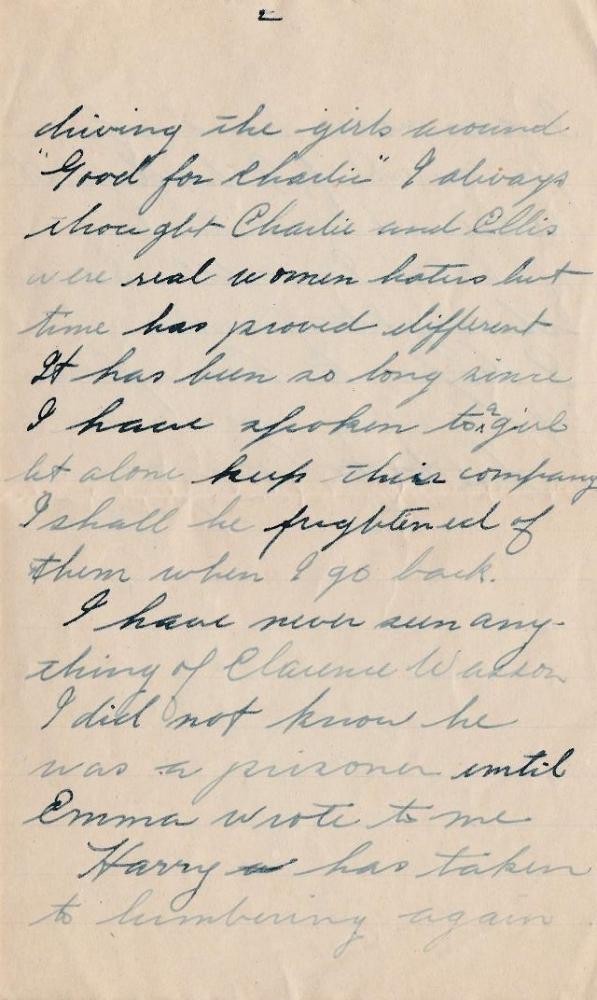 2
driving the girls around
"Good for Charlie" I always
thought Charlie and Ellis
were real women haters but
time has proved different
It has been so long since
I have spoken to a girl
let alone keep their company
I shall be frightened of
them when I go back.
I have never seen any-
thing of Clarence Wasson
I did not know he
was a prisoner until
Emma wrote to me
Harry has taken
to lumbering again